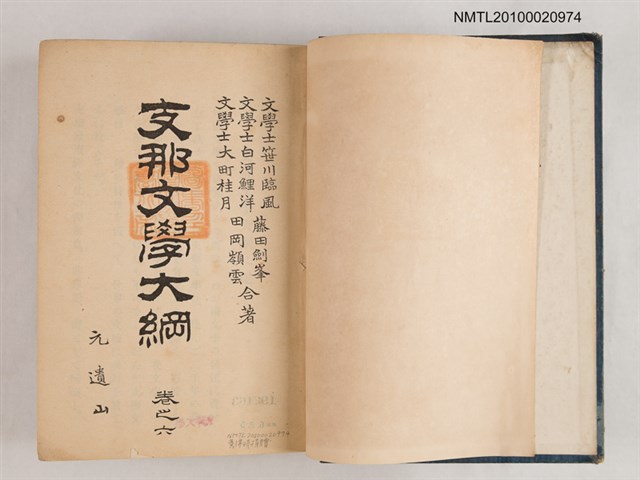 NMTL20100020974
文學士笹川臨風 藤田劍峯
文學士白河鯉洋 合著
文學士大町桂月 田岡嶺雲
支那文學大綱
卷之六
元遺山